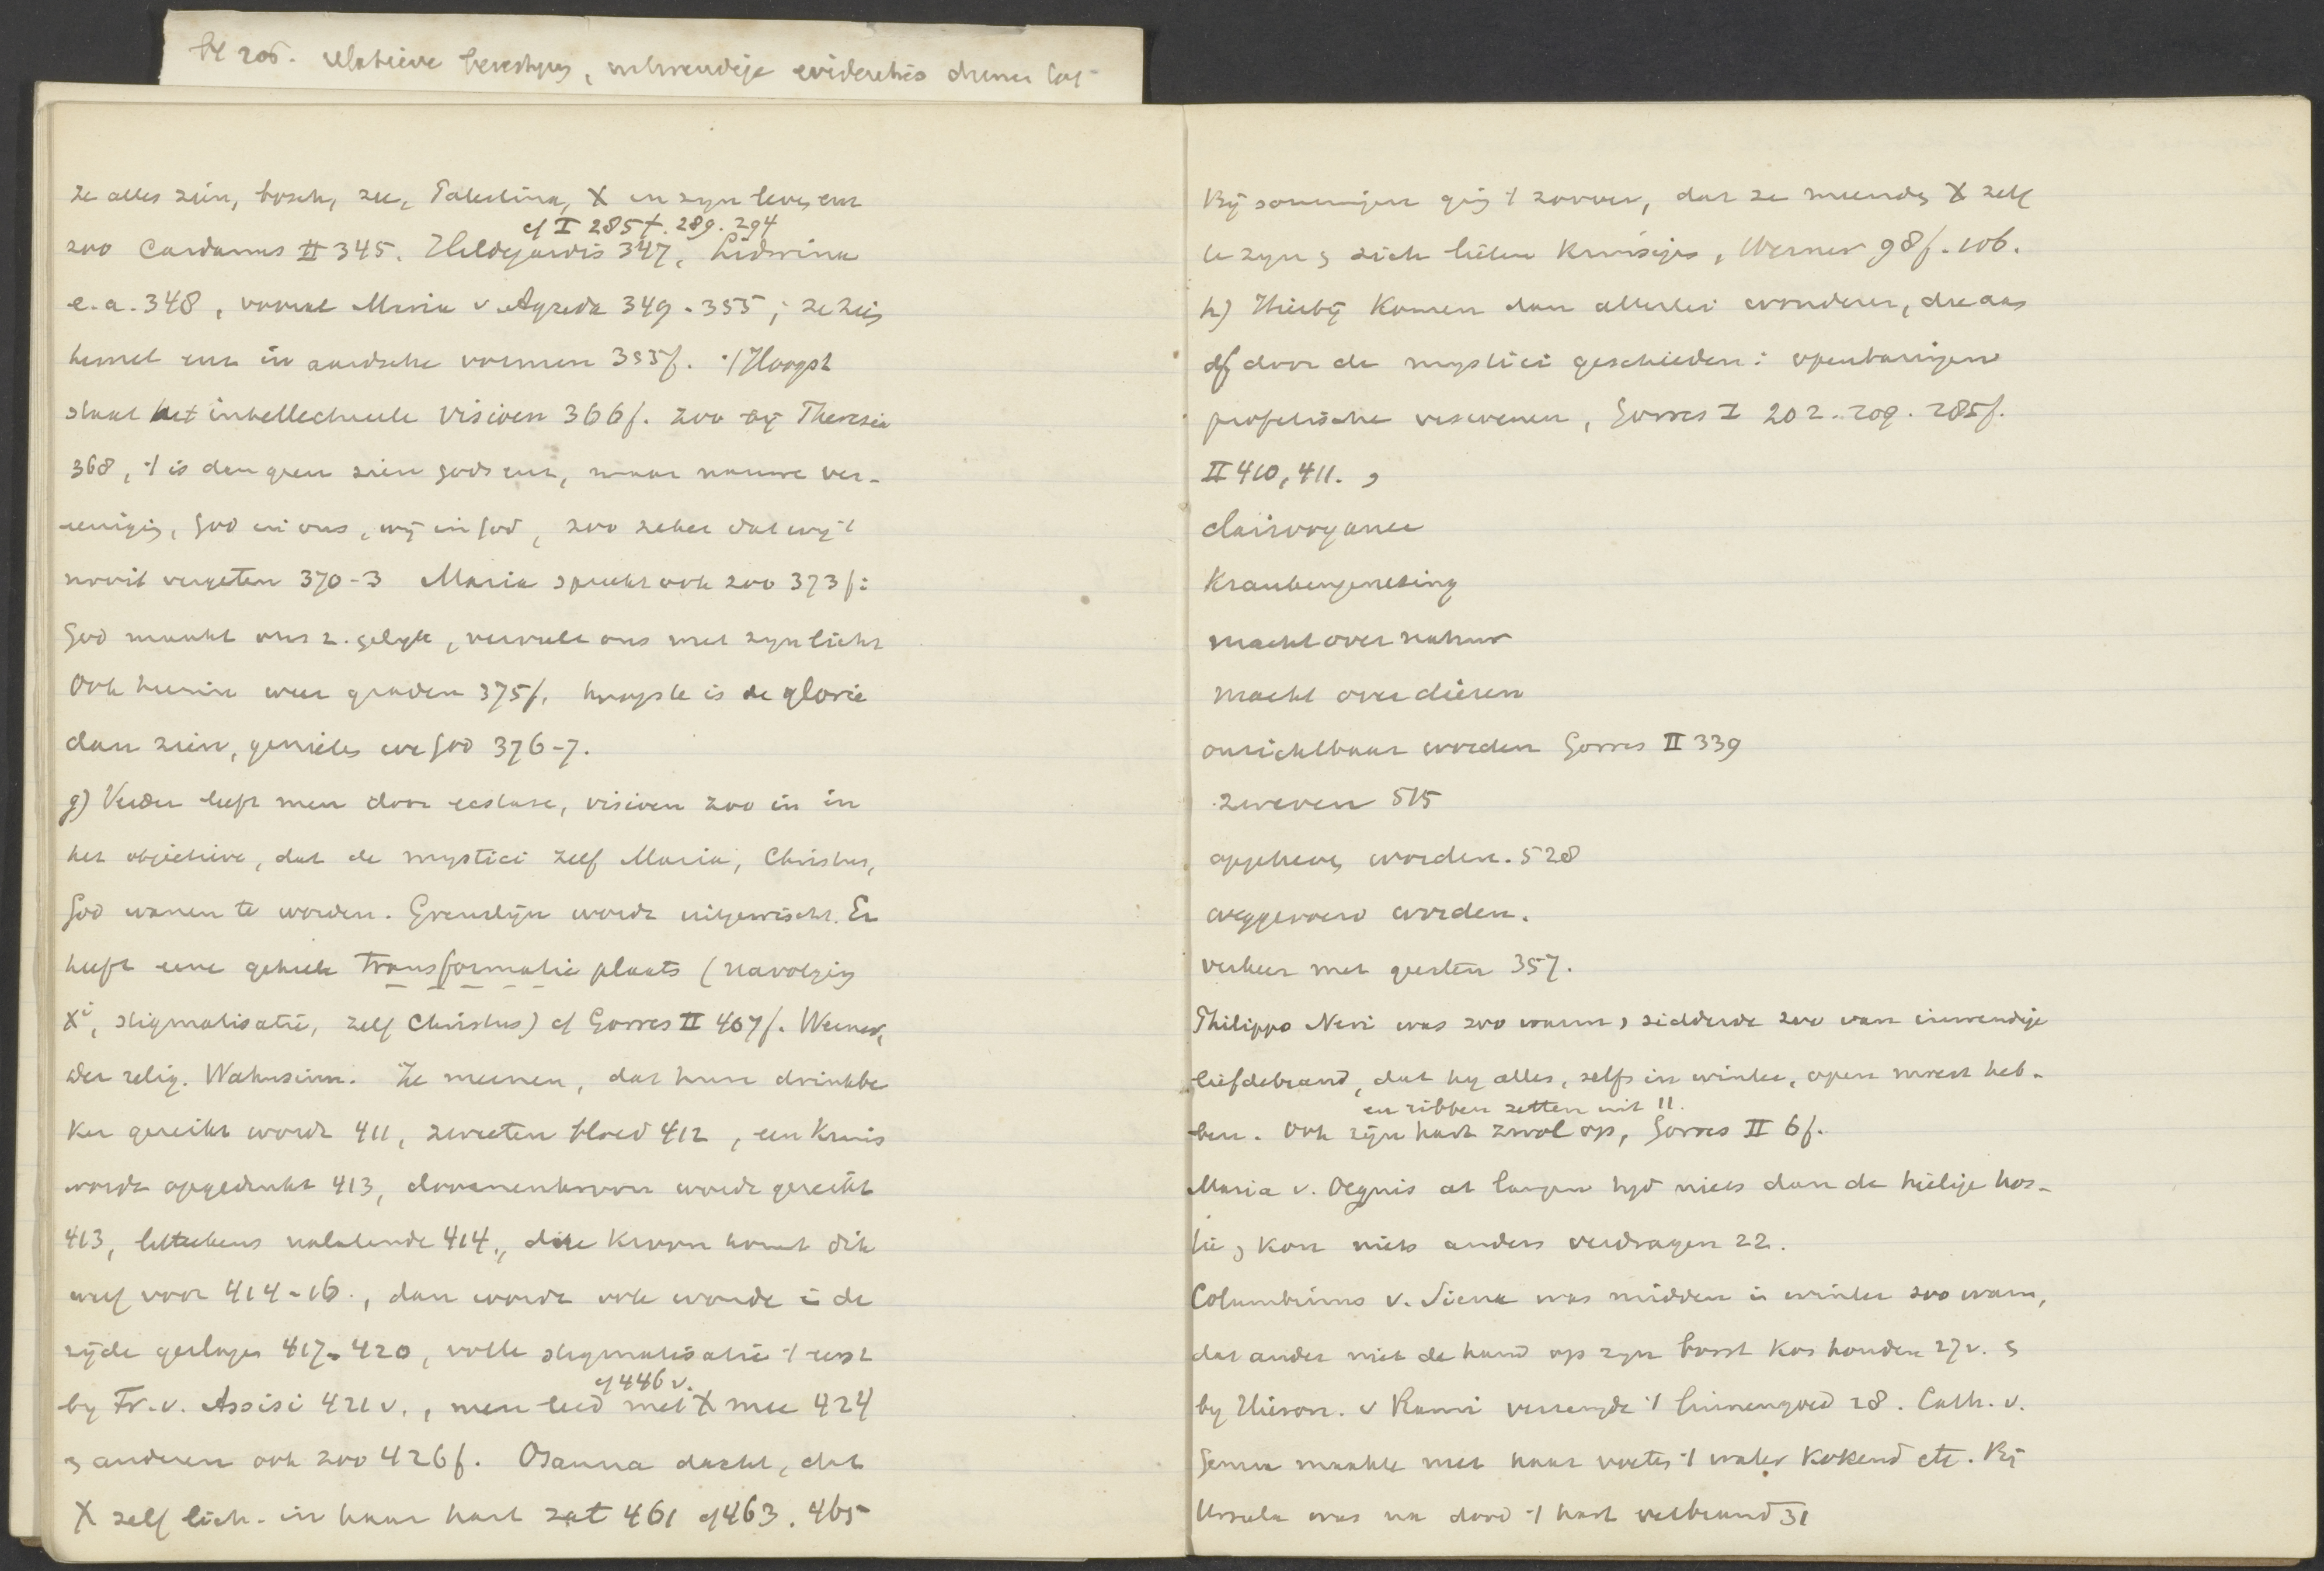 bl 205. relatieve
ze alles zien, bosch, zee, Palestina, X en zyn leven enz
cf I 285f. 289. 294
zoo Cardanus II 345. Hildegardis 347, Lidwina
e.a. 348, vooral Maria v Agreda 349-355; ze zien
hemel enz in aardsche vormen 355f. 't Hoogst
staat het intellectueele visioen 366f. zoo bij Theresia
368, 't is dan geen zien Gods enz, maar nauwe ver-
eeniging, God in ons, wij in God, zoo zeker dat wij 't
nooit vergeten 370-3 Maria spreekt ook zoo 373f:
God maakt ons z. gelyk, vervult ons met zyn licht
Ook hierin weer graden 375f. hoogste is de glorie
dan zien, genieten we God 376-7.
g) Verder leeft men door ecstase, visioen zoo in in
het objectieve, dat de mystici zelf Maria, Christus,
God wanen te worden. Grenslijn wordt uitgewischt. Er
heeft eene geheele transformatie plaats (navolging
Xi, stigmatisatie, zelf Christus) cf Gorres II 407f. Werner,
der relig. Wahnsinn. Ze meenen, dat hun drinkbe
ker gereikt wordt 411, zweeten bloed 412, een kruis
wordt opgedrukt 413, doornenkroon wordt gereikt
413, litteekens nalatende 414., die kroon komt dik
werf voor 414-16., dan wordt ook wonde i de
zijde geslagen 417-420, volle stigmatisatie 't eerst
cf 446 v.
by Fr. v. Assisi 421 v., men leed met X mee 424
en anderen ook zoo 426f. Osanna dacht, dat
X zelf lich. in haar hart zat 461 cf 463. 465
Bij sommigen ging 't zoover, dat ze meenden X zelf
te zyn en zich lieten kruisigen, Werner 98f. 106.
h) Hierbij komen dan allerlei wonderen, die aan
of door de mystici geschieden: openbaringen
profetische visioenen, Gorres I 202..209. 285f.
II 410, 411. ,
clairvoyance
Krankengenezing
macht over natuur
macht over dieren
onzichtbaar worden Gorres II 339
zweven 515
opgeheven worden. 528
weggevoerd worden.
verkeer met geesten 357.
Philippo Neri was zoo warm, sidderde zoo van inwendige
liefdebrand, dat hy alles, zelfs in winter, open moest heb-
en ribben zetten uit 11.
ben. Ook zijn hart zwol op, Gorres II 6f.
Maria v. Oegnis at langen tyd niets dan de heilige hos-
tie, kon niets anders verdragen 22.
Columbinus v. Siena was midden in winter zoo warm,
dat ander niet de hand op zyn borst kon houden 27v. en
by Hieron. v Narni verzengde 't linnengoed 28. Cath. v.
Genua maakte met haar voeten 't water kokend etc. Bij
Ursula was na dood 't hart verbrand 31